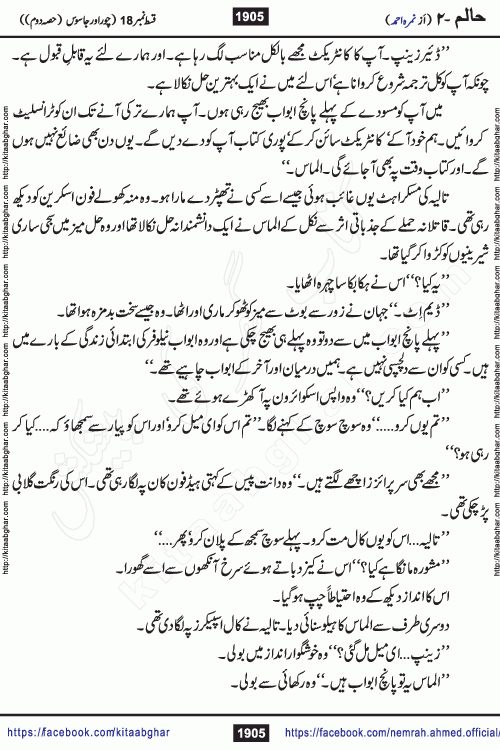 حالم -۲ (از نمرہ احمد)
1905
قسط نمبر 18 (چور اور جاسوس (حصہ دوم))
’’ڈئیر زینپ۔ آپ کا کانٹریکٹ مجھے بالکل مناسب لگ رہا ہے۔ اور ہمارے لئے یہ قابلِ قبول ہے۔
چونکہ آپ کو کل ترجمہ شروع کروانا ہے اس لئے میں نے ایک بہترین حل نکالا ہے۔
میں آپ کو مسودے کے پہلے پانچ ابواب بھیج رہی ہوں۔ آپ ہمارے ترکی آنے تک ان کو ٹرانسلیٹ
کروائیں۔ ہم خود آ کے کانٹریکٹ سائن کر کے پوری کتاب آپ کو دے دیں گے۔ یوں دن بھی ضائع نہیں ہوں
گے۔ اور کتاب وقت پہ بھی آ جائے گی۔ الماس۔‘‘
تالیہ کی مسکراہٹ یوں غائب ہوئی جیسے اسے کسی نے تھپڑ دے مارا ہو۔ وہ منہ کھولے فون اسکرین کو دیکھ
رہی تھی۔ قاتلانہ حملے کے جذباتی اثر سے نکل کے الماس نے ایک دانشمندانہ حل نکالا تھا اور وہ حل میز میں سجی ساری
شیرینیوں کو کڑوا کر گیا تھا۔
’’یہ کیا؟‘‘ اس نے ہکا بکا سا چہرہ اٹھایا۔
’’ڈیم اِٹ۔‘‘ جہان نے زور سے بوٹ سے میز کو ٹھوکر ماری اور اٹھا۔ وہ جیسے سخت بدمزہ ہوا تھا۔
’’پہلے پانچ ابواب میں سے دو تو وہ پہلے ہی بھیج چکی ہے اور وہ ابواب نیلوفر کی ابتدائی زندگی کے بارے میں
ہیں۔ کسی کو ان سے دلچسپی نہیں ہے۔ ہمیں درمیان اور آخر کے ابواب چاہیے تھے۔‘‘
’’اب ہم کیا کریں؟‘‘ وہ واپس اسکوائر ون پہ آ کھڑے ہوئے تھے۔
’’تم یوں کرو.....‘‘ وہ سوچ سوچ کے کہنے لگا۔ ’’تم اس کو ای میل کرو اور اس کو پیار سے سمجھاؤ کہ.... کیا کر
رہی ہو؟‘‘
’’مجھے بھی سرپرائزز اچھے لگتے ہیں۔‘‘ وہ دانت پیس کے کہتی ہیڈ فون کان پہ لگا رہی تھی۔ اس کی رنگت گلابی
پڑ چکی تھی۔
’’تالیہ... اس کو یوں کال مت کرو۔ پہلے سوچ سمجھ کے پلان کرو پھر....‘‘
’’مشورہ مانگا ہے کیا؟‘‘ اس نے کیز دباتے ہوئے سرخ آنکھوں سے اسے گھورا۔
اس کا انداز دیکھ کے وہ احتیاطاً چپ ہو گیا۔
دوسری طرف سے الماس کا ہیلو سنائی دیا۔ تالیہ نے کال اسپیکرز پہ لگا دی تھی۔
’’زینپ... ای میل مل گئی؟‘‘ وہ خوشگوار انداز میں بولی۔
’’الماس یہ تو پانچ ابواب ہیں۔‘‘ وہ رکھائی سے بولی۔
https://facebook.com/kitaabghar
1905
https://facebook.com/nemrah.ahmed.official/
http://kitaabghar.com http://kitaabghar.com http://kitaabghar.com http://kitaabghar.com http://kitaabghar.com
http://kitaabghar.com http://kitaabghar.com http://kitaabghar.com http://kitaabghar.com http://kitaabghar.com